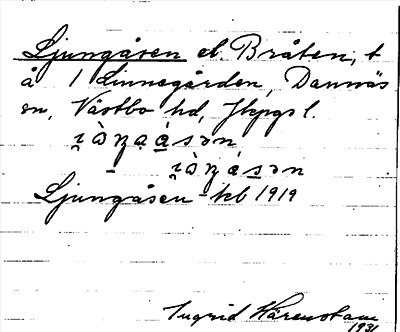 Ljungåsen el. Bråten, t
å 1 Linnegården, Dannäs
sn, Västbo hd, Jkpgs l.
Ljungåsen - kb 1919
Ingrid Härenstam
1931